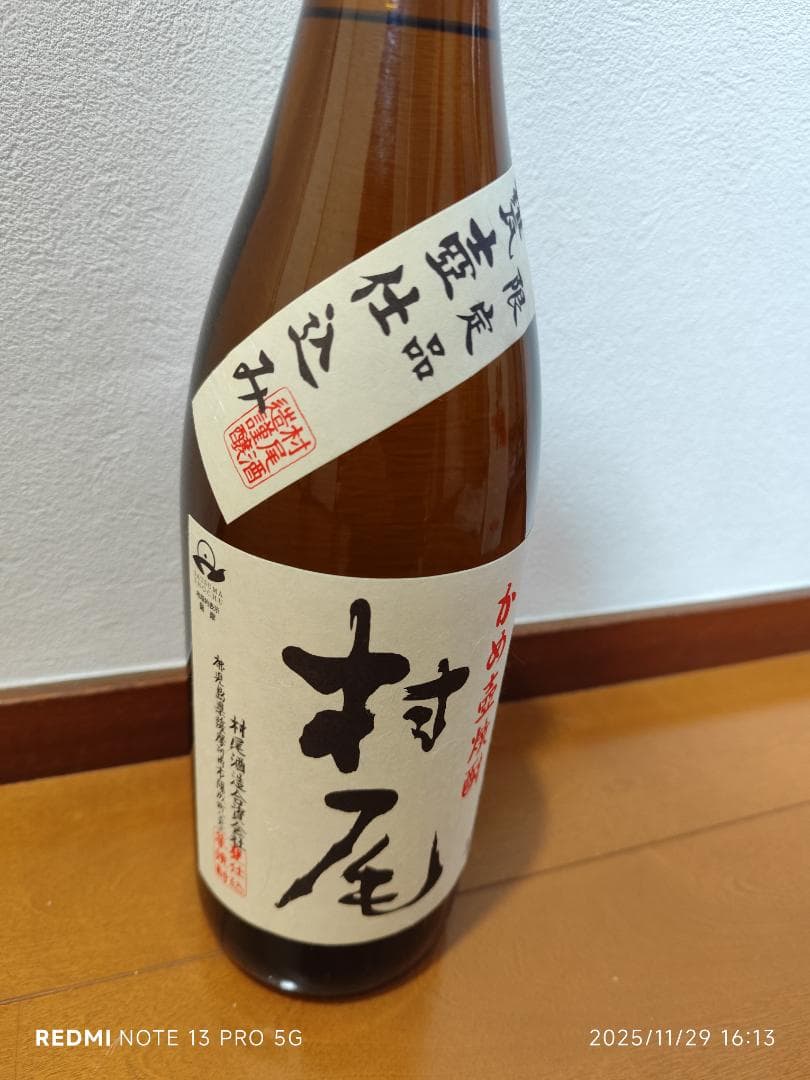 限定品
甕壺仕込み
村尾酒
造謹醸
かめ壺焼酎
村尾
村尾酒造合資会社
SATSUMA
SHOCHU
REDMI NOTE 13 PRO 5G
2025/11/29 16:13